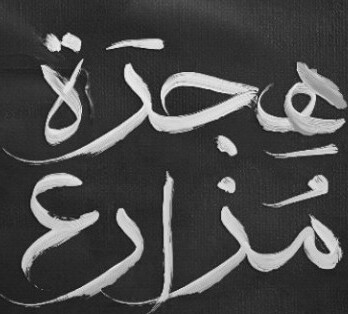 هِجرَة
مُزارع